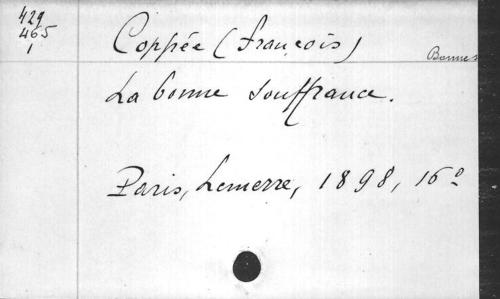 429
465
1
Coppée (François)
Bonne
La bonne souffrance.
Paris, Lemerre, 1898, 16º